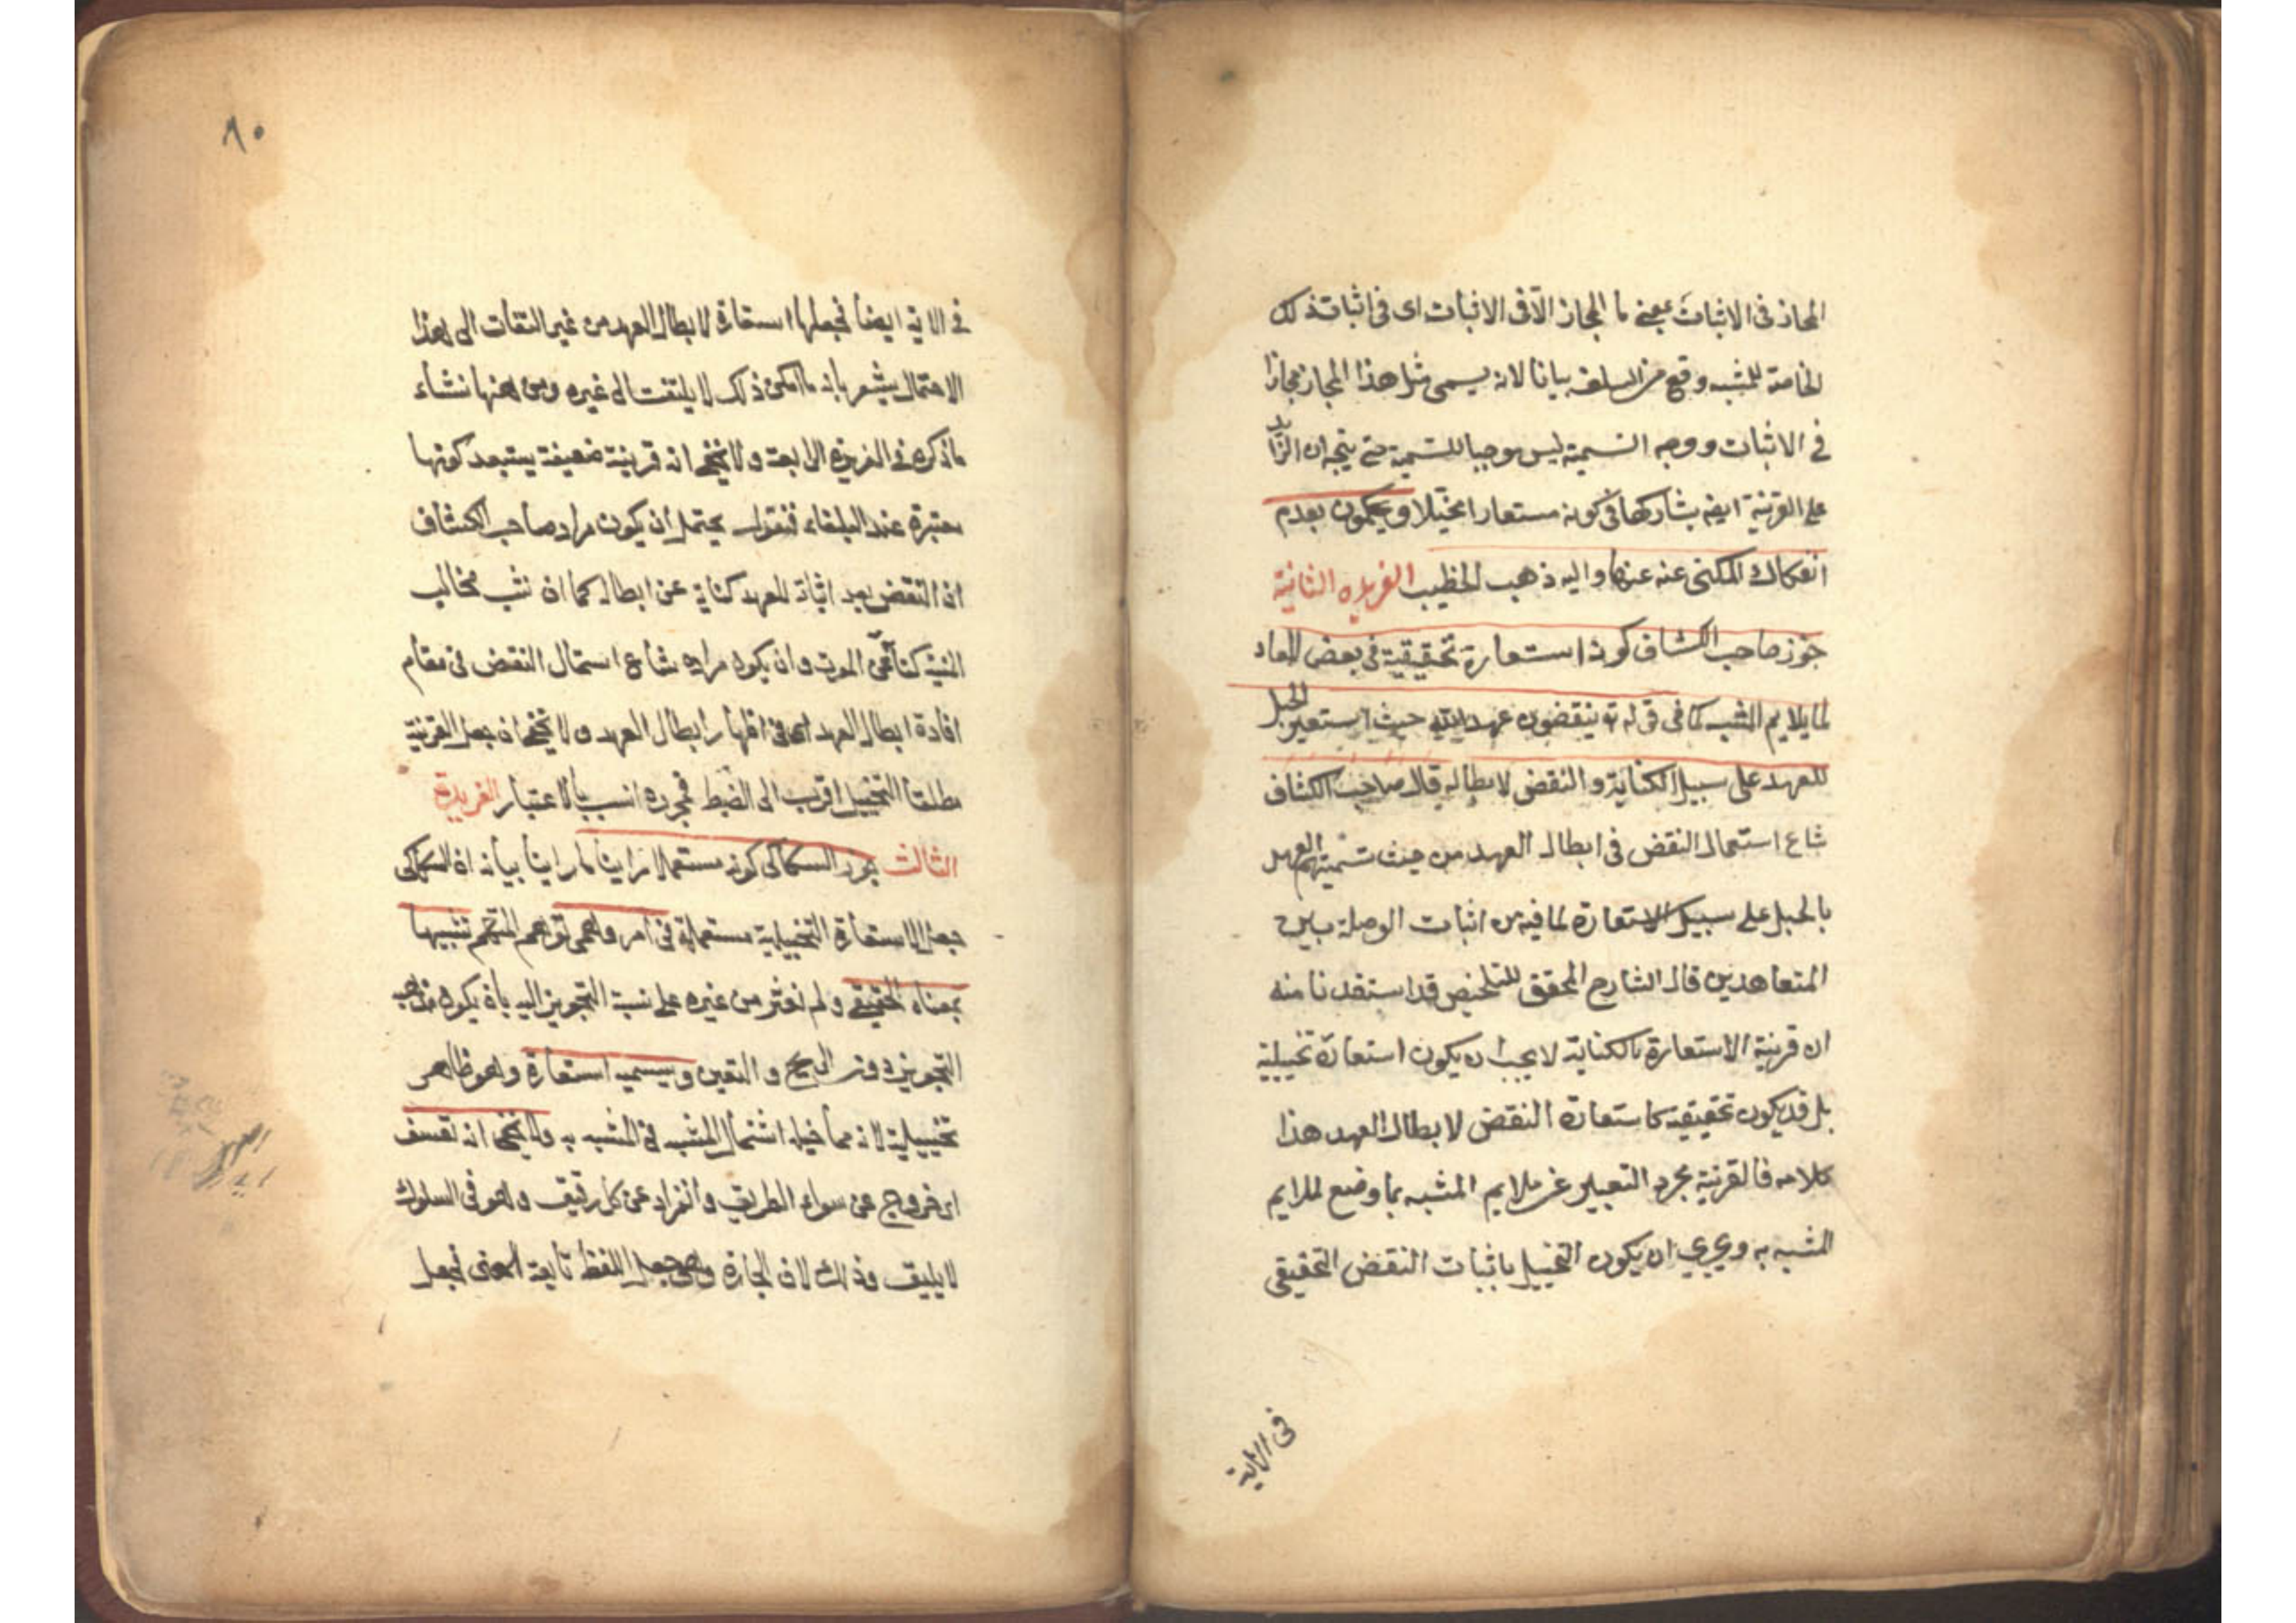 المجاز فى الاثبات بمعنى ما المجاز الا فى الاثبات اى فى اثبات ذلك
الخاصة للمشبه وقع من السلف بيانا لانه يسمى مثل هذا المجاز مجازا
فى الاثبات ووجه التسمية ليس موجبا للتسمية حتى يتجه ان الزائد
على القرينة ايضا يشاركها فى كونه مستعارا تخيلا ويحكمون بعدم
انفكاك المكنى عنه عنها واليه ذهب الخطيب الفريده الثانية
جوز صاحب الكشاف كونه استعارة تحقيقية فى بعض المواد
لما يلايم المشبه كما فى قوله تع ينقضون عهد الله حيث استعير الحبل
للعهد على سبيل الكناية والنقض لابطاله قال صاحب الكشاف
شاع استعمال النقض فى ابطال العهد من حيث تسميتهم العهد
بالحبل على سبيل الاستعارة لما فيه من اثبات الوصلة بين
المتعاهدين قال الشارح المحقق للتلخيص قد استفدنا منه
ان قرينة الاستعارة بالكناية لا يجب ان يكون استعارة تخييلية
بل قد يكون تحقيقية كاستعارة النقض لابطال العهد هذا
كلامه فالقرينة مجرد التعبير عن ملايم المشبه بما وضع لملايم
المشبه به ويجرى ان يكون التخييل باثبات النقض التحقيقى
فى الاية
٨٠
فى الاية ايضا فجعلها استعارة لابطال العهد من غير التفات الى هذا
الاحتمال يشعر بانه ما امكن ذلك لا يلتفت الى غيره ومن ههنا نشاء
ما ذكره فى الفريدة الرابعة ولا يخفى انه قرينة ضعيفة يستبعد كونها
معتبرة عند البلغاء فنقول يحتمل ان يكون مراد صاحب الكشاف
ان النقض بعد اثباته للعهد كناية عن ابطاله كما ان نشب مخالب
المنية كناية عن الموت وان يكون مراده شاع استعمال النقض فى مقام
افادة ابطال العهد اى فى اظهار ابطال العهد ولا يخفى ان جعل القرينة
مطلقا التخييل اقرب الى الضبط فمجرده انسب بالاعتبار الفريدة
الثالث جوز السكاكى كونه مستعملا بيانه ان السكاكى
جعل الاستعارة التخييلية مستعملة فى امر وهمى توهم المتكلم تشبيها
بمعناه الحقيقى ولم نعثر من غيره على نسبة التجويز اليه بان يكون مذهب
التجويز دون والتعين ويسميه استعارة وهو ظاهر
تخييلية لانه مما خيل اشتمال المشبه فى المشبه به ولا يخفى انه تعسف
اى خروج عن سواء الطريق وانفراد عن كل رفيق وهو فى السلوك
لا يليق وذلك لان الجادة وهى جعل اللفظ تابعة المعنى فجعل